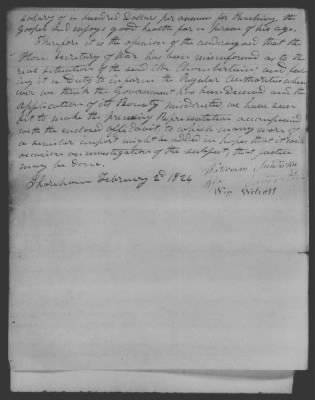 salary of a hundred Dollars per annum for Preaching the
Gospel and enjoys good health for a person of his age.
Therefore it is the opinion of the undersigned that the
Hon. Secretary of War has been misinformed as to the
real situation of the said Mr Chamberlain and feel
ing it a Duty to inform the Regular Authorities when
ever we think the Government has been Deceived and the
application of its Bounty misdirected we have seen
fit to make the preceding Representation accompanied
with the enclosed affidavit to which many more of
a similar import might be added in hopes that it will
occasion an investigation of the subject, that justice
may be done.
February 2d 1824
Wm